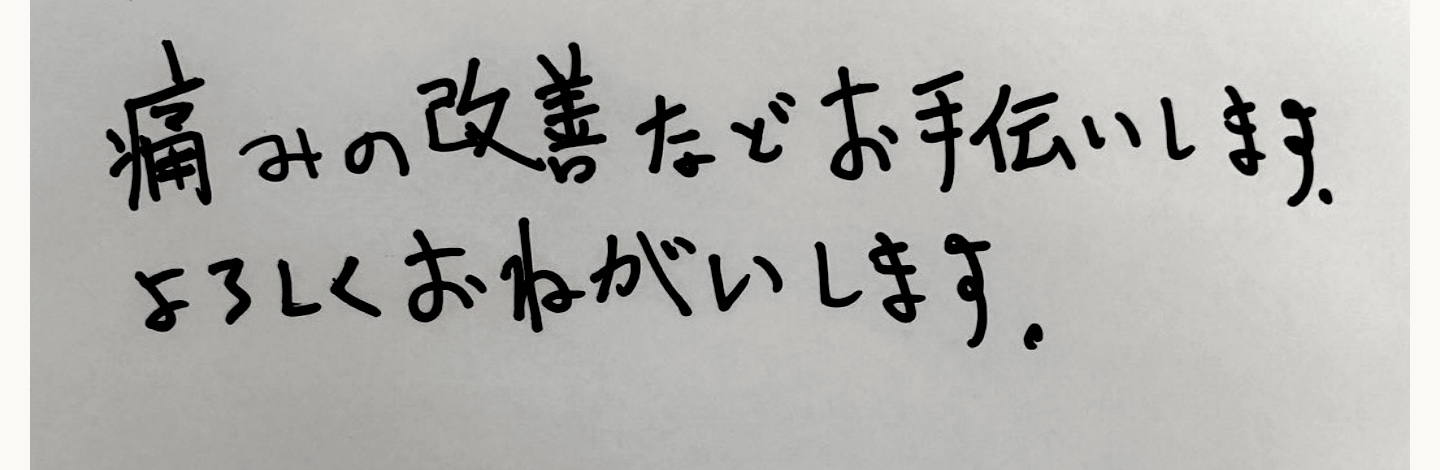 痛みの改善などお手伝いします.
よろしくおねがいします.